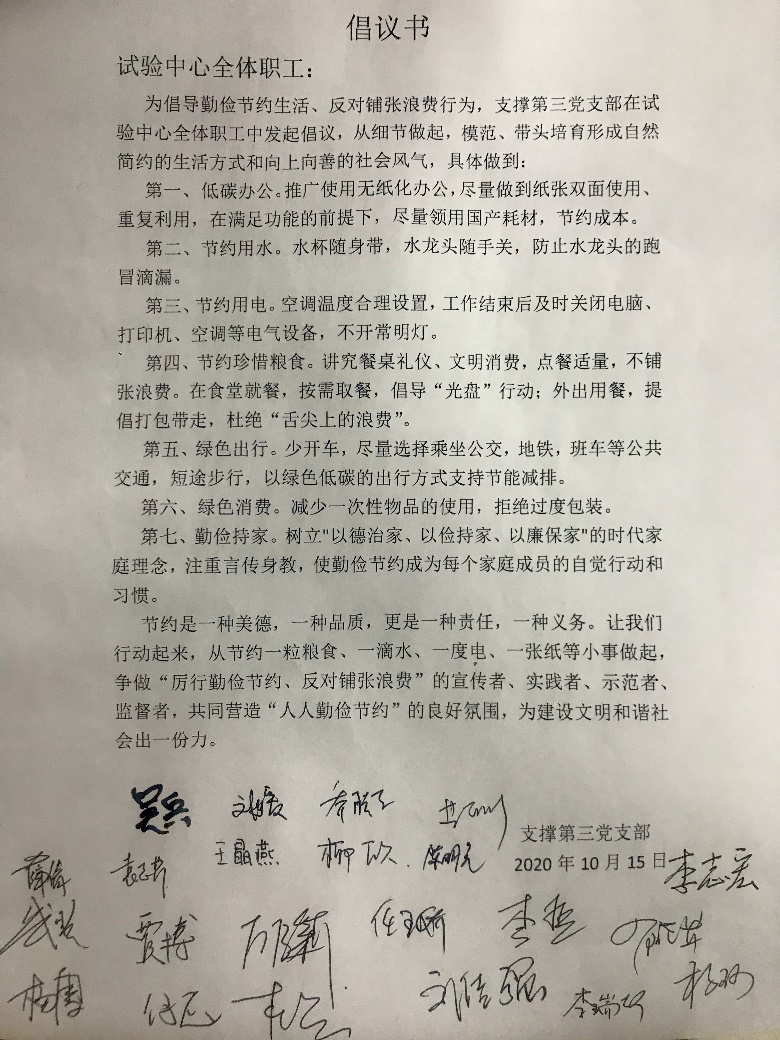 倡议书
试验中心全体职工：
为倡导勤俭节约生活、反对铺张浪费行为，支撑第三党支部在试
验中心全体职工中发起倡议，从细节做起，模范、带头培育形成自然
简约的生活方式和向上向善的社会风气，具体做到：
第一、低碳办公。推广使用无纸化办公，尽量做到纸张双面使用、
重复利用，在满足功能的前提下，尽量领用国产耗材，节约成本。
第二、节约用水。水杯随身带，水龙头随手关，防止水龙头的跑
冒滴漏。
第三、节约用电。空调温度合理设置，工作结束后及时关闭电脑、
打印机、空调等电气设备，不开常明灯。
第四、节约珍惜粮食。讲究餐桌礼仪、文明消费，点餐适量，不铺
张浪费。在食堂就餐，按需取餐，倡导“光盘”行动；外出用餐，提
倡打包带走，杜绝“舌尖上的浪费”。
第五、绿色出行。少开车，尽量选择乘坐公交，地铁，班车等公共
交通，短途步行，以绿色低碳的出行方式支持节能减排。
第六、绿色消费。减少一次性物品的使用，拒绝过度包装。
第七、勤俭持家。树立"以德治家、以俭持家、以廉保家"的时代家
庭理念，注重言传身教，使勤俭节约成为每个家庭成员的自觉行动和
习惯。
节约是一种美德，一种品质，更是一种责任，一种义务。让我们
行动起来，从节约一粒粮食、一滴水、一度电、一张纸等小事做起，
争做“厉行勤俭节约、反对铺张浪费”的宣传者、实践者、示范者、
监督者，共同营造“人人勤俭节约”的良好氛围，为建设文明和谐社
会出一份力。
吴兵
支撑第三党支部
王晶燕 柳欣 2020 年 10 月 15 日 李志宏
贾博 李哲
杨周